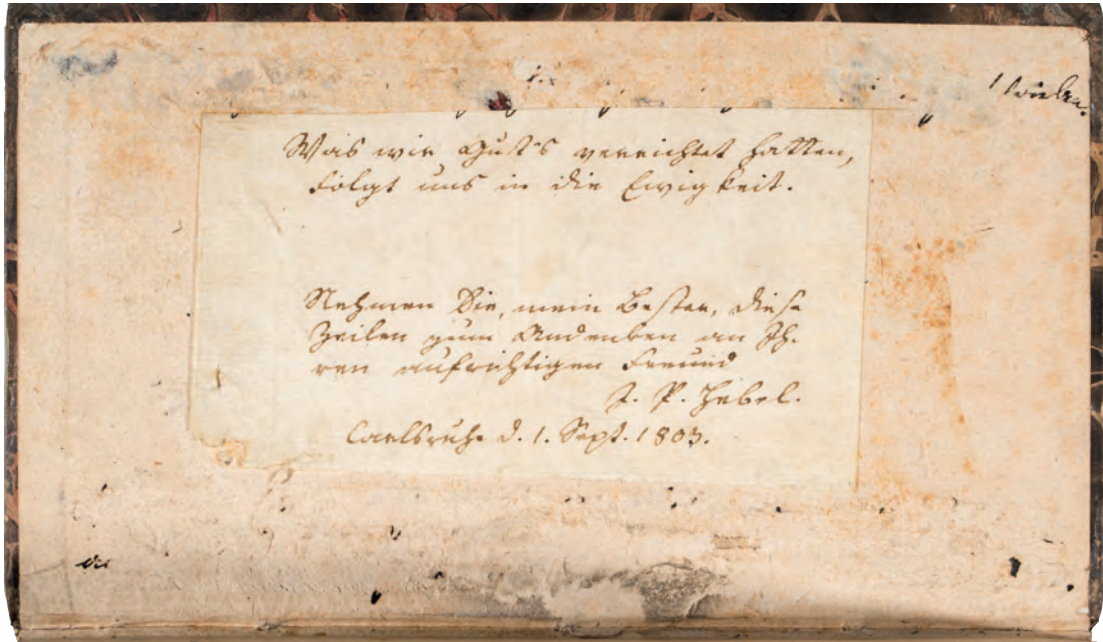 Was wir Gutes verrichtet hatten,
folgt uns in die Ewigkeit.
Nehmen Sie, mein Bester, diese
Zeilen zum Andenken an Ih-
ren aufrichtigen Freund
J. P. Hebel.
Carlsruhe d. 1. Sept. 1803.